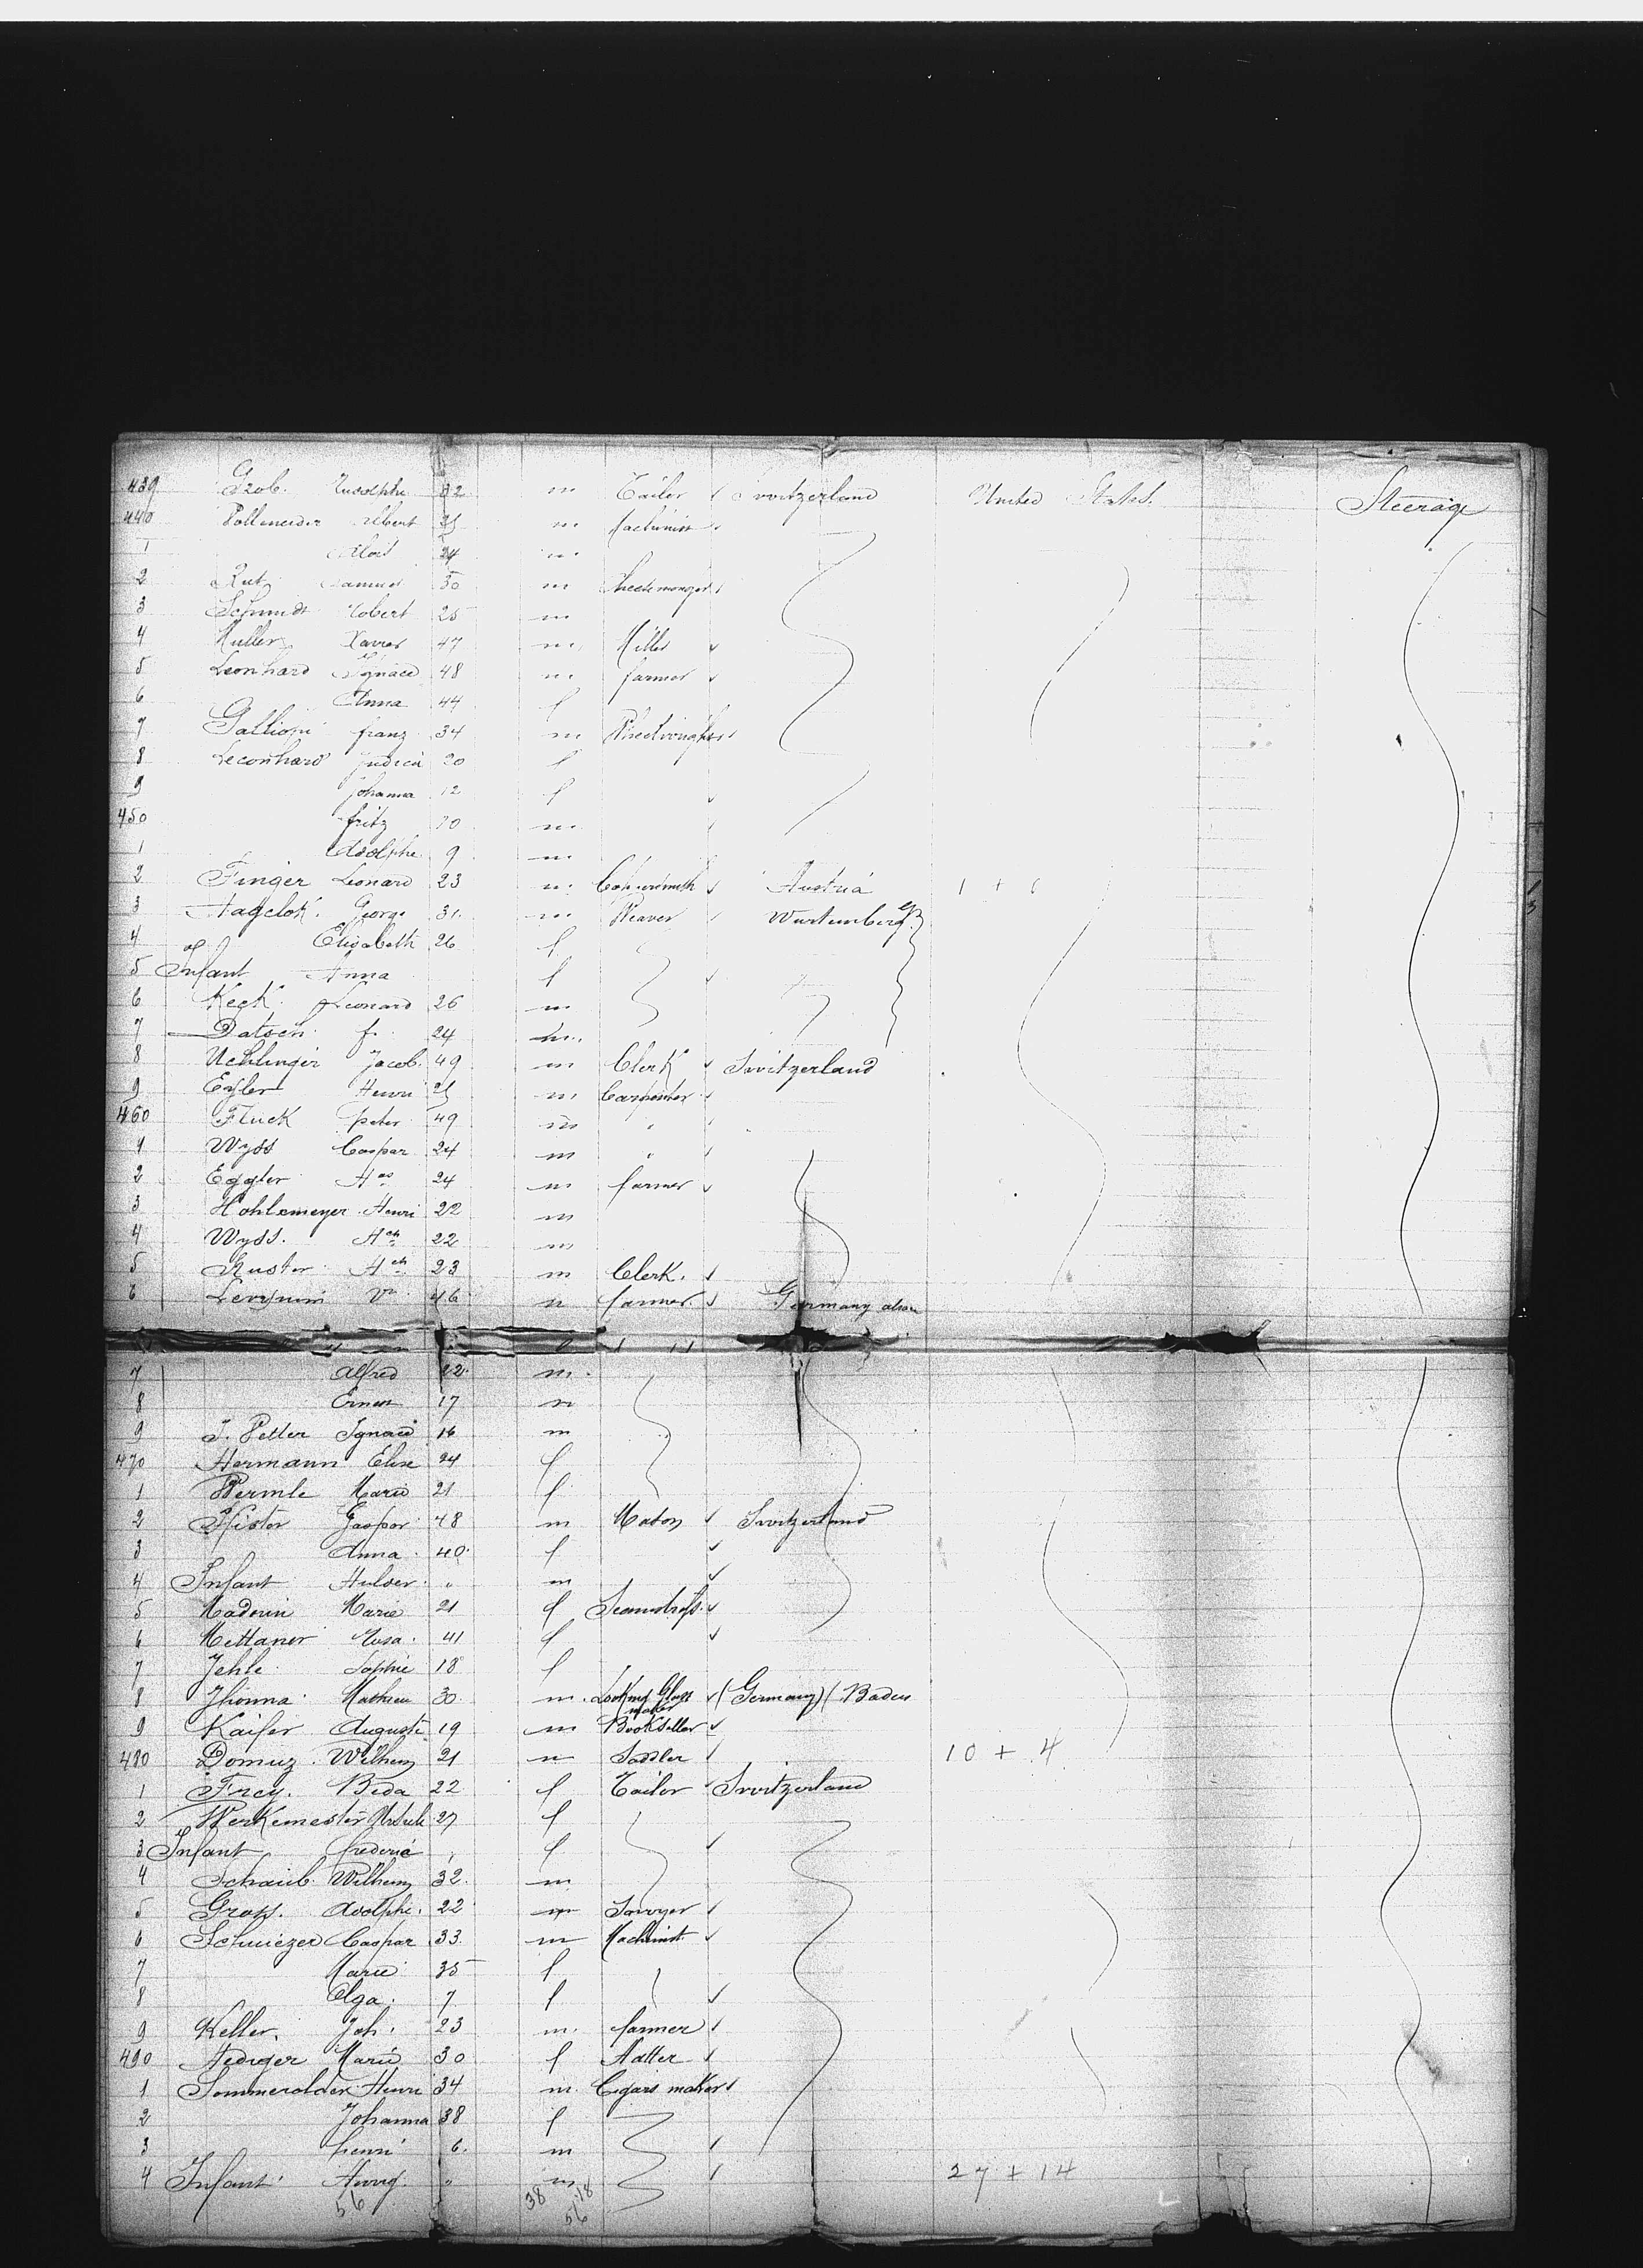 439 Grob. Rudolphe 32 m Tailor ✓ Switzerland United States. Steerage
440 Pollmeider Albert 25 m Machinist ✓
1 Alois 24 m
2 Rutz Samuel 30 m Cheesemonger ✓
3 Schmidt Robert 25 m
4 Muller Xavier 47 m Miller ✓
5 Leonhard Ignace 48 m farmer ✓
6 Anna 44 f
7 franz 34 m
8 Leconhard 20 f
9 Johanna 12 f ✓
450 fritz 10 m
1 Adolphe 9 m
2 Finger Leonard 23 m Coppersmith ✓ Austria 1 + 6
3 George 31 m Weaver Wurtemberg
4 Elisabeth 26 f
5 Infant Anna f ✓
6 Keck Leonard 26 m
7 Datsch f. 24 m
8 Uehlinger Jacob. 49 m Clerk ✓ Switzerland
9 Henri 25 m Carpenter ✓
460 Fluck peter 49 m "
1 Wyss Caspar 24 m "
2 Eggler As 24 m farmer ✓
3 Hohlemeyer Henri 22 m
4 Wyss. Ach 22 m
5 Ruster Ach 23 m Clerk. ✓
6 46 m farmer. ✓ Germany
7 Alfred 22 m
8 Ernest 17 m
9 J. Petter Ignace 16 m
470 Hermann Elise 24 f
1 Wermle Marie 21 f
2 Pfister Gaspar 48 m Mason ✓ Switzerland
3 Anna 40 f ✓
4 Infant " m ✓
5 Madorin Marie 21 f Seamstress. ✓
6 Mettaner Rosa. 41 f ✓
7 Jehle Sophie 18 f
8 Mathieu 30 m. Looking Glass maker ✓ (Germany) (Baden
9 Kaifer Auguste 19 m Bookseller ✓
480 Domuz Wilhem 21 m Saddler ✓ 10 + 4
1 Frey. Beda 22 f Tailor ✓ Switzerland
2 Werkemester 27 f
3 Infant frederic f ✓
4 Schaub Wilhem 32 m
5 Gross. Adolphe. 22 m Sawyer ✓
6 Schwiezer Caspar 33 m Machinist ✓
7 Marie 35 f
8 Olga. 7 f ✓
9 Keller. Joh. 23 m. farmer ✓
490 Hediger Marie 30 f ✓
1 Sommerolder Henri 34 m. Cigars maker ✓
2 Johanna 38 f
3 henri 6. m ✓
4 Infant " m ✓ 27 + 14
56 38 18
56